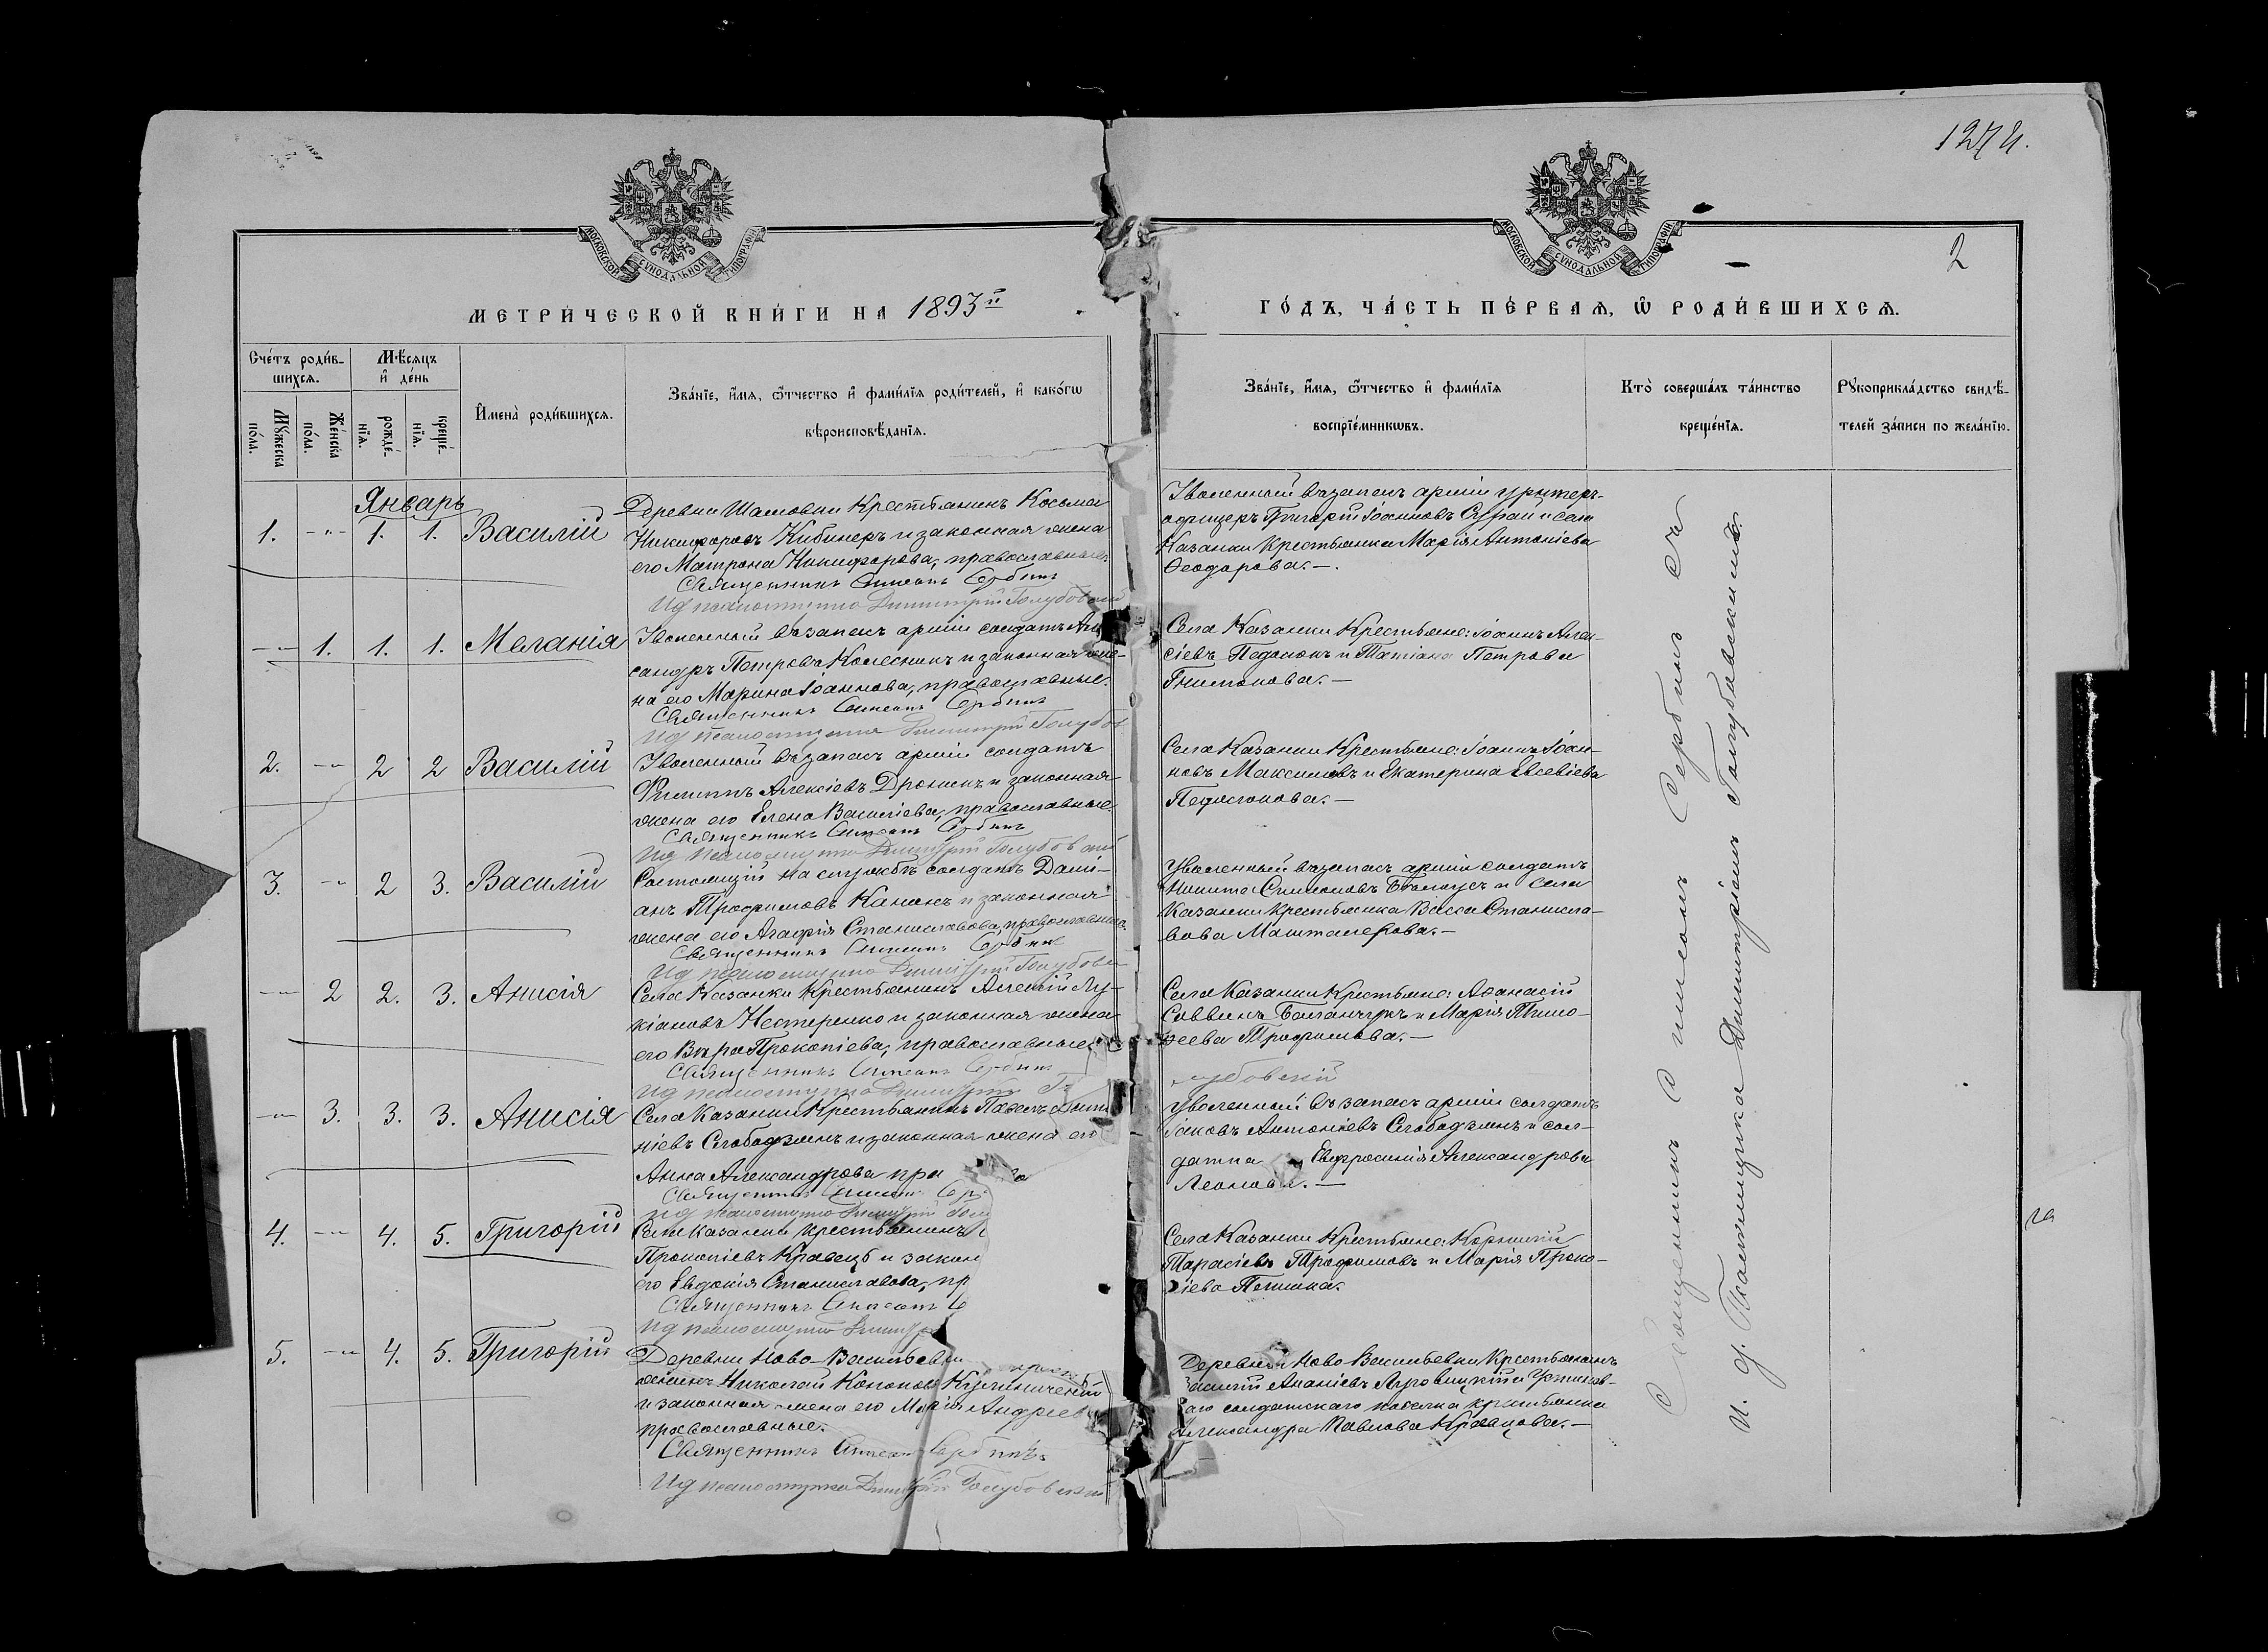 1274.
2
МОСКОВСКОЙ СѴНОДАЛЬНОЙ ТИПОГРАФІИ
МОСКОВСКОЙ СѴНОДАЛЬНОЙ ТИПОГРАФІИ
МЕТРИ́ЧЕСКОЙ КНИ́ГИ НА 1893й
ГО́ДЪ, ЧА́СТЬ ПЕ́РВАѦ, Ѡ҆ РОДИ́ВШИХСѦ.
Сче́тъ роди́в-
шихсѧ.
Мѣ́сѧцъ
и҆ де́нь
Мꙋ́жеска
по́ла.
Же́нска
по́ла.
рожде́-
нїѧ.
креще́-
нїѧ.
И҆мена̀ роди́вшихсѧ.
Зва́нїе, и҆́мѧ, ѻ҆́тчество и҆ фами́лїѧ роди́телей, и҆ како́гѡ
вѣроисповѣ́данїѧ.
Зва́нїе, и҆́мѧ, ѻ҆́тчество и҆ фами́лїѧ
воспрїе́мникѡвъ.
Кто̀ соверша́лъ та́инство
креще́нїѧ.
Рꙋкоприкла́дство свидѣ́-
телей за́писи по жела́нїю.
Январь
1. -"- 1. 1. Василій
Деревни Шамовки Крестьянинъ Косьма
Никифоровъ Кибинеръ и законная жена
его Матрона Никифорова, православные.
Священникъ Симеонъ Сербинъ
Ид псаломщика Димитрій Голубовскій
Уволенный въ запасъ арміи унтеръ-
офицеръ Григорій Іоанновъ и села
Казанки Крестьянка Марія Антоніева
Ѳеодорова.—
-"- 1. 1. 1. Меланія
Уволенный въ запасъ арміи солдатъ Але
сандръ Петровъ Колесникъ и законная же-
на его Марина Іоаннова, православные.
Священникъ Симеонъ Сербинъ
Ид псаломщика Димитрій Голубов
Села Казанки Крестьяне: Іоаннъ Алек-
сіевъ и Татіана Петрова
2. -"- 2 2 Василій
Уволенный въ запасъ арміи солдатъ
Филиппъ Алексіевъ и законная
жена его Елена Василіева, православные.
Священникъ Симеонъ Сербинъ
Ид псаломщика Димитрій Голубовский
Села Казанки Крестьяне: Іоаннъ Іоан-
новъ Максимовъ и Екатерина Евсевіева
3. -"- 2 3. Василій
Состоящій на службѣ солдатъ Дамі-
анъ Трофимовъ и законная
жена его Агафія Станиславова, православные.
Священникъ Симеонъ Сербинъ
Ид псаломщика Димитрій Голубовс
Уволенный въ запасъ арміи солдатъ
Никита Симоновъ Бѣлоусъ и села
Казанки Крестьянка Васса Станисла-
вова Машталерова.—
-"- 2 2. 3. Анисія
Села Казанки Крестьянинъ Алексій Лу-
кіановъ Нестеренко и законная жена
его Вѣра Прокопіева, православные.
Священникъ Симеонъ Сербинъ
Ид псаломщика Димитрій Г
лубовскій
Села Казанки Крестьяне: Аѳанасій
Саввинъ и Марія Тимо-
ѳеева Трофимова.—
-"- 3. 3. 3. Анисія
Села Казанки Крестьянинъ Павелъ Анто
ніевъ Слободзянъ и законная жена его
Анна Александрова пра
Священникъ Симеонъ Сер
Ид псаломщика Димитрій Голу
Уволенный въ запасъ арміи солдатъ
Іаковъ Антоніевъ Слободзянъ и сол-
датка Евфросинія Александрова
Леонова.—
4. -"- 4. 5. Григорій
Села Казанки Крестьянинъ
Прокопіевъ Кравецъ и закон
его Евдокія Станиславова, пр
Священникъ Симеонъ С
Ид псаломщика Димитр
Села Казанки Крестьяне: Корнилій
Тарасіевъ Трофимовъ и Марія Проко-
піева
5. -"- 4. 5. Григорій
Деревни Ново-Васильевки крест
янинъ Николай Кононов
и законная жена его Марія Андреев
православные.
Священникъ Симеонъ Сербинъ.
Ид псаломщика Димитрій Голубовскій
Деревни Ново Васильевки Крестьянинъ
Ананіевъ и
аго солдатскаго поселка крестьянка
Александра Павлова Кравцова.—
Священникъ Симеонъ Сербинъ съ
и. д. Псаломщика Димитріемъ Голубовскимъ.